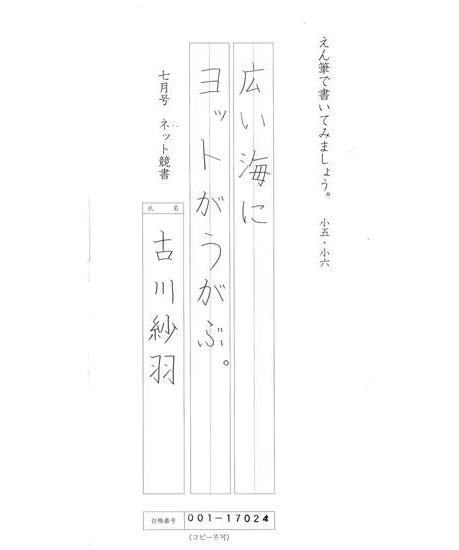 えん筆で書いてみましょう。 小五・小六
広い海に
ヨットがうがぶ。
七月号 ネット競書
氏 名
古川紗羽
台帳番号 001-17024
(コピー不可)